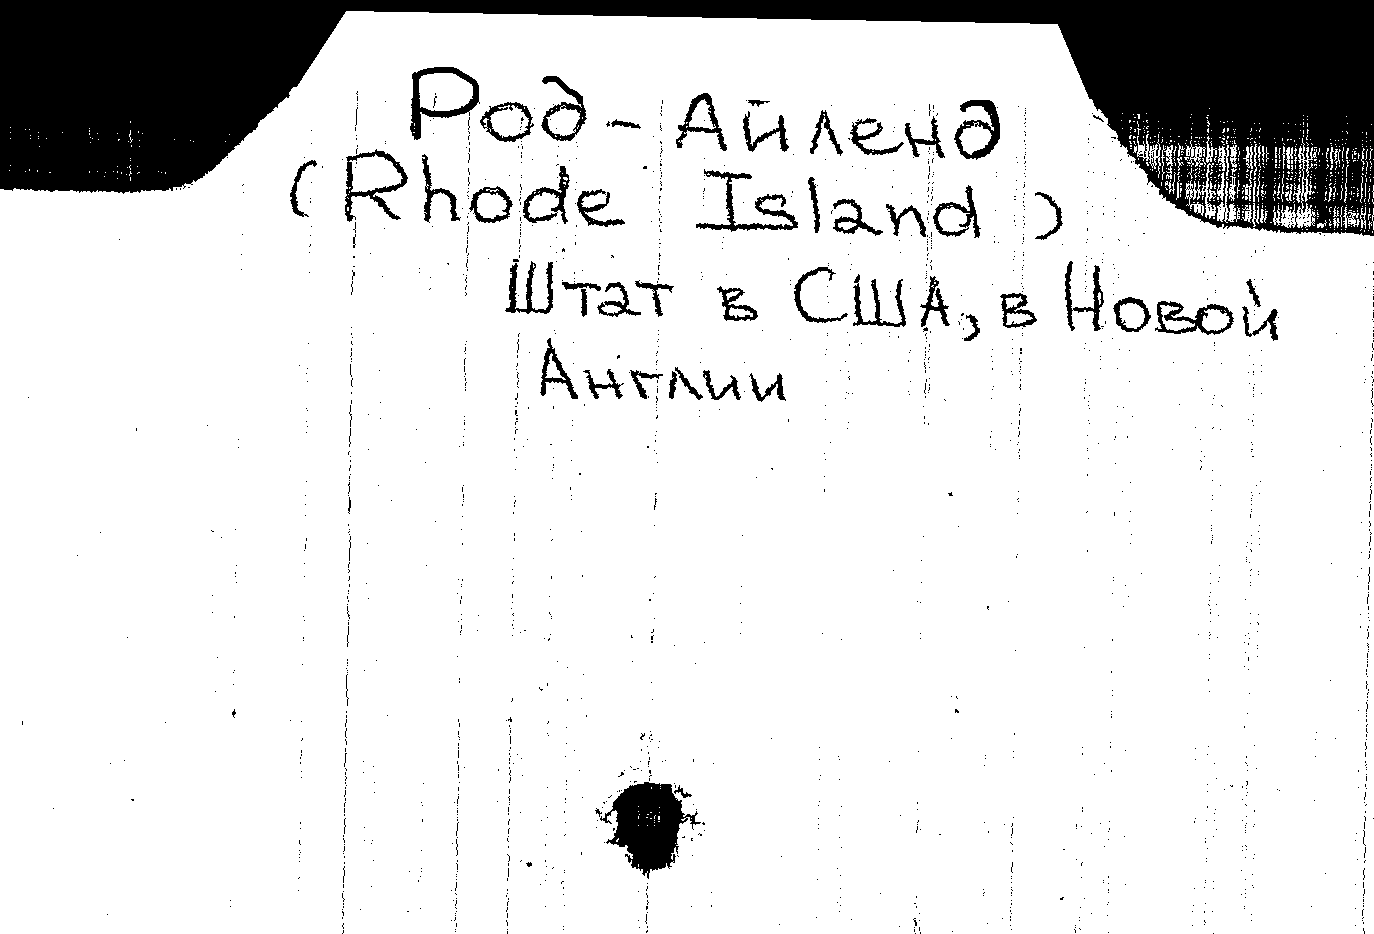 Род-Айленд
(Rhode Island)
Штат в США, в Новой
Англии